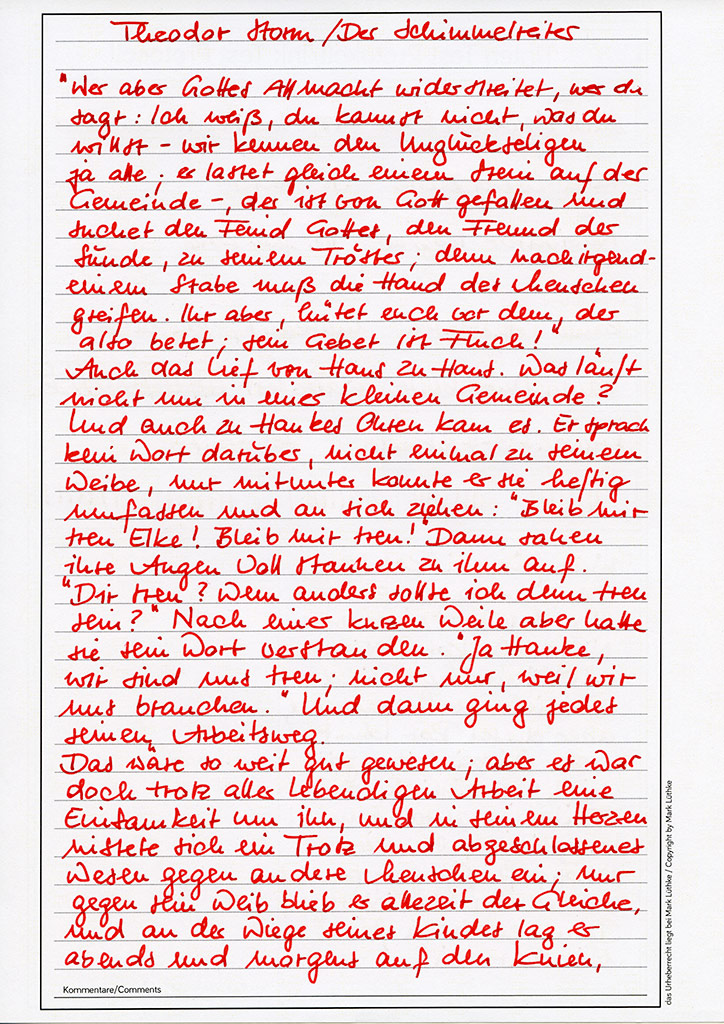 Theodor Storm / Der Schimmelreiter
"Wer aber Gottes Allmacht widerstreitet, wer da
sagt: Ich weiß, du kannst nicht, was du
willst – wir kennen den Unglückseligen
ja alle; er lastet gleich einem Stein auf der
Gemeinde –, der ist von Gott gefallen und
suchet den Feind Gottes, den Freund der
Sünde, zu seinem Tröster; denn nach irgend-
einem Stabe muß die Hand des Menschen
greifen. Ihr aber, hütet euch vor dem, der
also betet; sein Gebet ist Fluch!"
Auch das lief von Haus zu Haus. Was läuft
nicht um in einer kleinen Gemeinde?
Und auch zu Haukes Ohren kam es. Er sprach
kein Wort darüber, nicht einmal zu seinem
Weibe, nur mitunter konnte er sie heftig
umfassen und an sich ziehen: "Bleib mir
treu Elke! Bleib mir treu!" Dann sahen
ihre Augen voll Staunen zu ihm auf.
"Dir treu? Wem anders sollte ich denn treu
sein?" Nach einer kurzen Weile aber hatte
sie sein Wort verstanden. "Ja Hauke,
wir sind uns treu; nicht nur, weil wir
uns brauchen." Und dann ging jedes
seinen Arbeitsweg.
Das wäre so weit gut gewesen; aber es war
doch trotz aller lebendigen Arbeit eine
Einsamkeit um ihn, und in seinem Herzen
nistete sich ein Trotz und abgeschlossenes
Wesen gegen andere Menschen ein; nur
gegen sein Weib blieb er allezeit der Gleiche,
und an der Wiege seines Kindes lag er
abends und morgens auf den Knien,
Kommentare/Comments
das Urheberrecht liegt bei Mark Lüthke / Copyright by Mark Lüthke